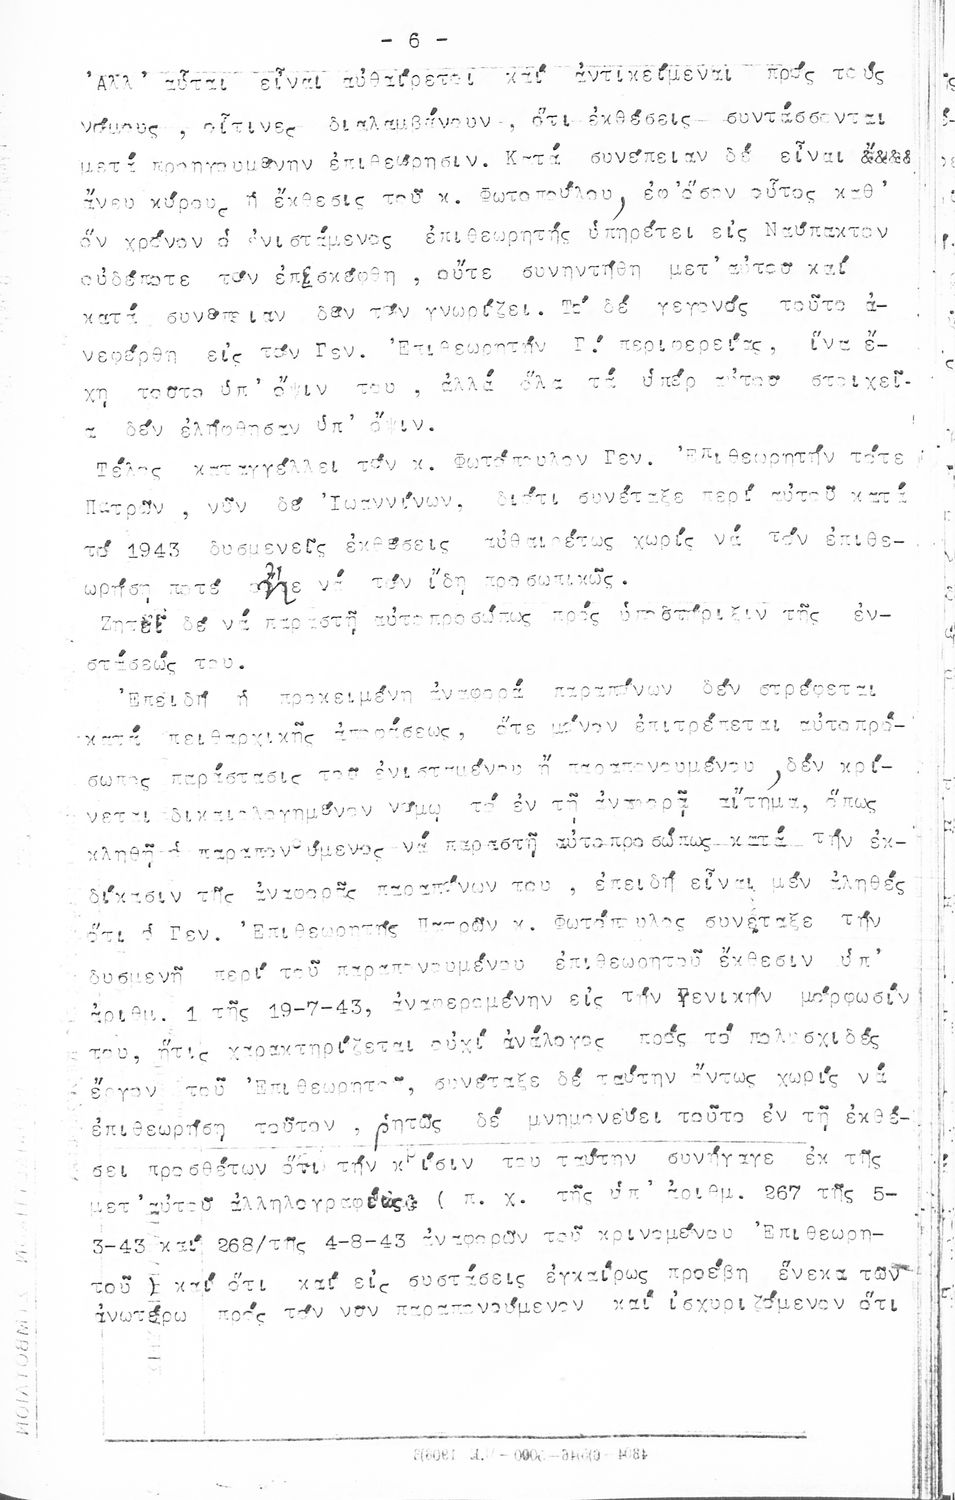 - 6 -
'Αλλ' αὗται εἶναι αὐθαίρετοι καί ἀντικείμεναι πρός τούς
νόμους , οἵτινες διαλαμβάνουν , ὅτι ἐκθέσεις συντάσσονται
μετά προηγουμένην ἐπιθεώρησιν. Κατά συνέπειαν δέ εἶναι &&&&
ἄνευ κύρους ἡ ἔκθεσις τοῦ κ. Φωτοπούλου, ἐφ'ὅσον οὗτος καθ'
ὅν χρόνον ὁ ἐνιστάμενος ἐπιθεωρητής ὑπηρέτει εἰς Ναύπακτον
οὐδέποτε τόν ἐπεσκέφθη , οὔτε συνηντήθη μετ'αὐτοῦ καί
κατά συνέπειαν δέν τόν γνωρίζει. Τό δέ γεγονός τοῦτο ἀ-
νεφέρθη εἰς τόν Γεν. 'Επιθεωρητήν Γ! περιφερείας, ἵνα ἔ-
χη τοῦτο ὑπ' ὄψιν του , ἀλλά ὅλα τά ὑπέρ αὐτοῦ στοιχεῖ-
α δέν ἐλήφθησαν ὑπ' ὄψιν.
Τέλος καταγγέλλει τόν κ. Φωτόπουλον Γεν. 'Επιθεωρητήν τότε
Πατρῶν , νῦν δέ 'Ιωαννίνων, διότι συνέταξε περί αὐτοῦ κατά
τό 1943 δυσμενεῖς ἐκθέσεις αὐθαιρέτως χωρίς νά τόν ἐπιθε-
ωρήση ποτέ ἤ νά τόν ἴδη προσωπικῶς.
Ζητεῖ δέ νά παραστῆ αὐτοπροσώπως πρός ὑποστήριξιν τῆς ἐν-
στάσεώς του.
'Επειδή ἡ προκειμένη ἀναφορά παραπόνων δέν στρέφεται
κατά πειθαρχικῆς ἀποφάσεως, ὅτε μόνον ἐπιτρέπεται αὐτοπρό-
σωπος παράστασις τοῦ ἐνισταμένου ἤ παραπονουμένου , δέν κρί-
νεται δικαιολογημένον νόμῳ τό ἐν τῇ ἀναφορᾷ αἴτημα, ὅπως
κληθῆ ὁ παραπονούμενος νά παραστῆ αὐτοπροσώπως κατά τήν ἐκ-
δίκασιν τῆς ἀναφορᾶς παραπόνων του , ἐπειδή εἶναι μέν ἀληθές
ὅτι ὁ Γεν. 'Επιθεωρητής Πατρῶν κ. Φωτόπουλος συνέταξε τήν
δυσμενῆ περί τοῦ παραπονουμένου ἐπιθεωρητοῦ ἔκθεσιν ὑπ'
ἀριθμ. 1 τῆς 19-7-43, ἀναφερομένην εἰς τήν Γενικήν μόρφωσίν
του, ἥτις χαρακτηρίζεται οὐχί ἀνάλογος πρός τό πολυσχιδές
ἔργον τοῦ 'Επιθεωρητοῦ, συνέταξε δέ ταύτην ὄντως χωρίς νά
ἐπιθεωρήση τοῦτον , ρητῶς δέ μνημονεύει τοῦτο ἐν τῇ ἐκθέ-
σει προσθέτων ὅτι τήν κρίσιν του ταύτην συνήγαγε ἐκ τῆς
μετ'αὐτοῦ ἀλληλογραφίας ( π. χ. τῆς ὑπ' ἀριθμ. 267 τῆς 5-
3-43 καί 268/τῆς 4-8-43 ἀναφορῶν τοῦ κρινομένου 'Επιθεωρη-
τοῦ ) καί ὅτι καί εἰς συστάσεις ἐγκαίρως προέβη ἕνεκα τῶν
ἀνωτέρω πρός τόν νῦν παραπονούμενον καί ἰσχυριζόμενον ὅτι